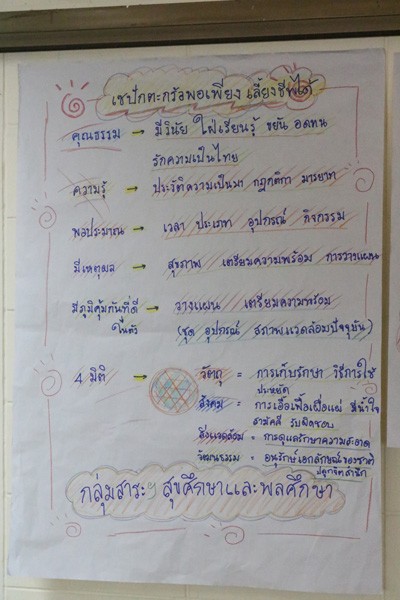 เซปักตะกร้อพอเพียง เลี้ยงชีพได้
คุณธรรม → มีวินัย ใฝ่เรียนรู้ ขยัน อดทน
รักความเป็นไทย
ความรู้ → ประวัติความเป็นมา กฎกติกา มารยาท
พอประมาณ → เวลา ประเภท อุปกรณ์ กิจกรรม
มีเหตุผล → สุขภาพ เตรียมความพร้อม การวางแผน
มีภูมิคุ้มกันที่ดี → วางแผน เตรียมความพร้อม
ในตัว (ชุด อุปกรณ์ สภาพแวดล้อมปัจจุบัน)
4 มิติ → วัตถุ = การเก็บรักษา วิธีการใช้
ประหยัด
สังคม = การเอื้อเฟื้อเผื่อแผ่ มีน้ำใจ
สามัคคี รับผิดชอบ
สิ่งแวดล้อม = การดูแลรักษาความสะอาด
วัฒนธรรม = อนุรักษ์เอกลักษณ์ของชาติ
ปลูกจิตสำนึก
กลุ่มสาระฯ สุขศึกษาและพลศึกษา